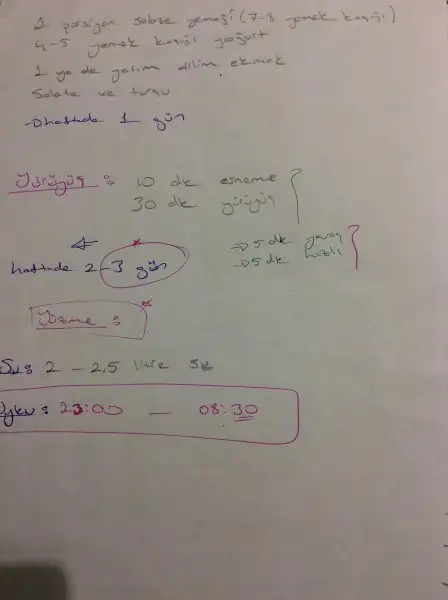 1 porsiyon sebze yemeği (7-8 yemek kaşığı)
4-5 yemek kaşığı yoğurt
1 ya da yarım dilim ekmek
Salata ve turşu
→ haftada 1 gün
Yürüyüş : 10 dk esneme
30 dk yürüyüş
→ 5 dk yavaş
→ 5 dk hızlı
haftada 2-3 gün
Yüzme :
Su : 2 - 2,5 litre su
Uyku : 23:00 — 08:30